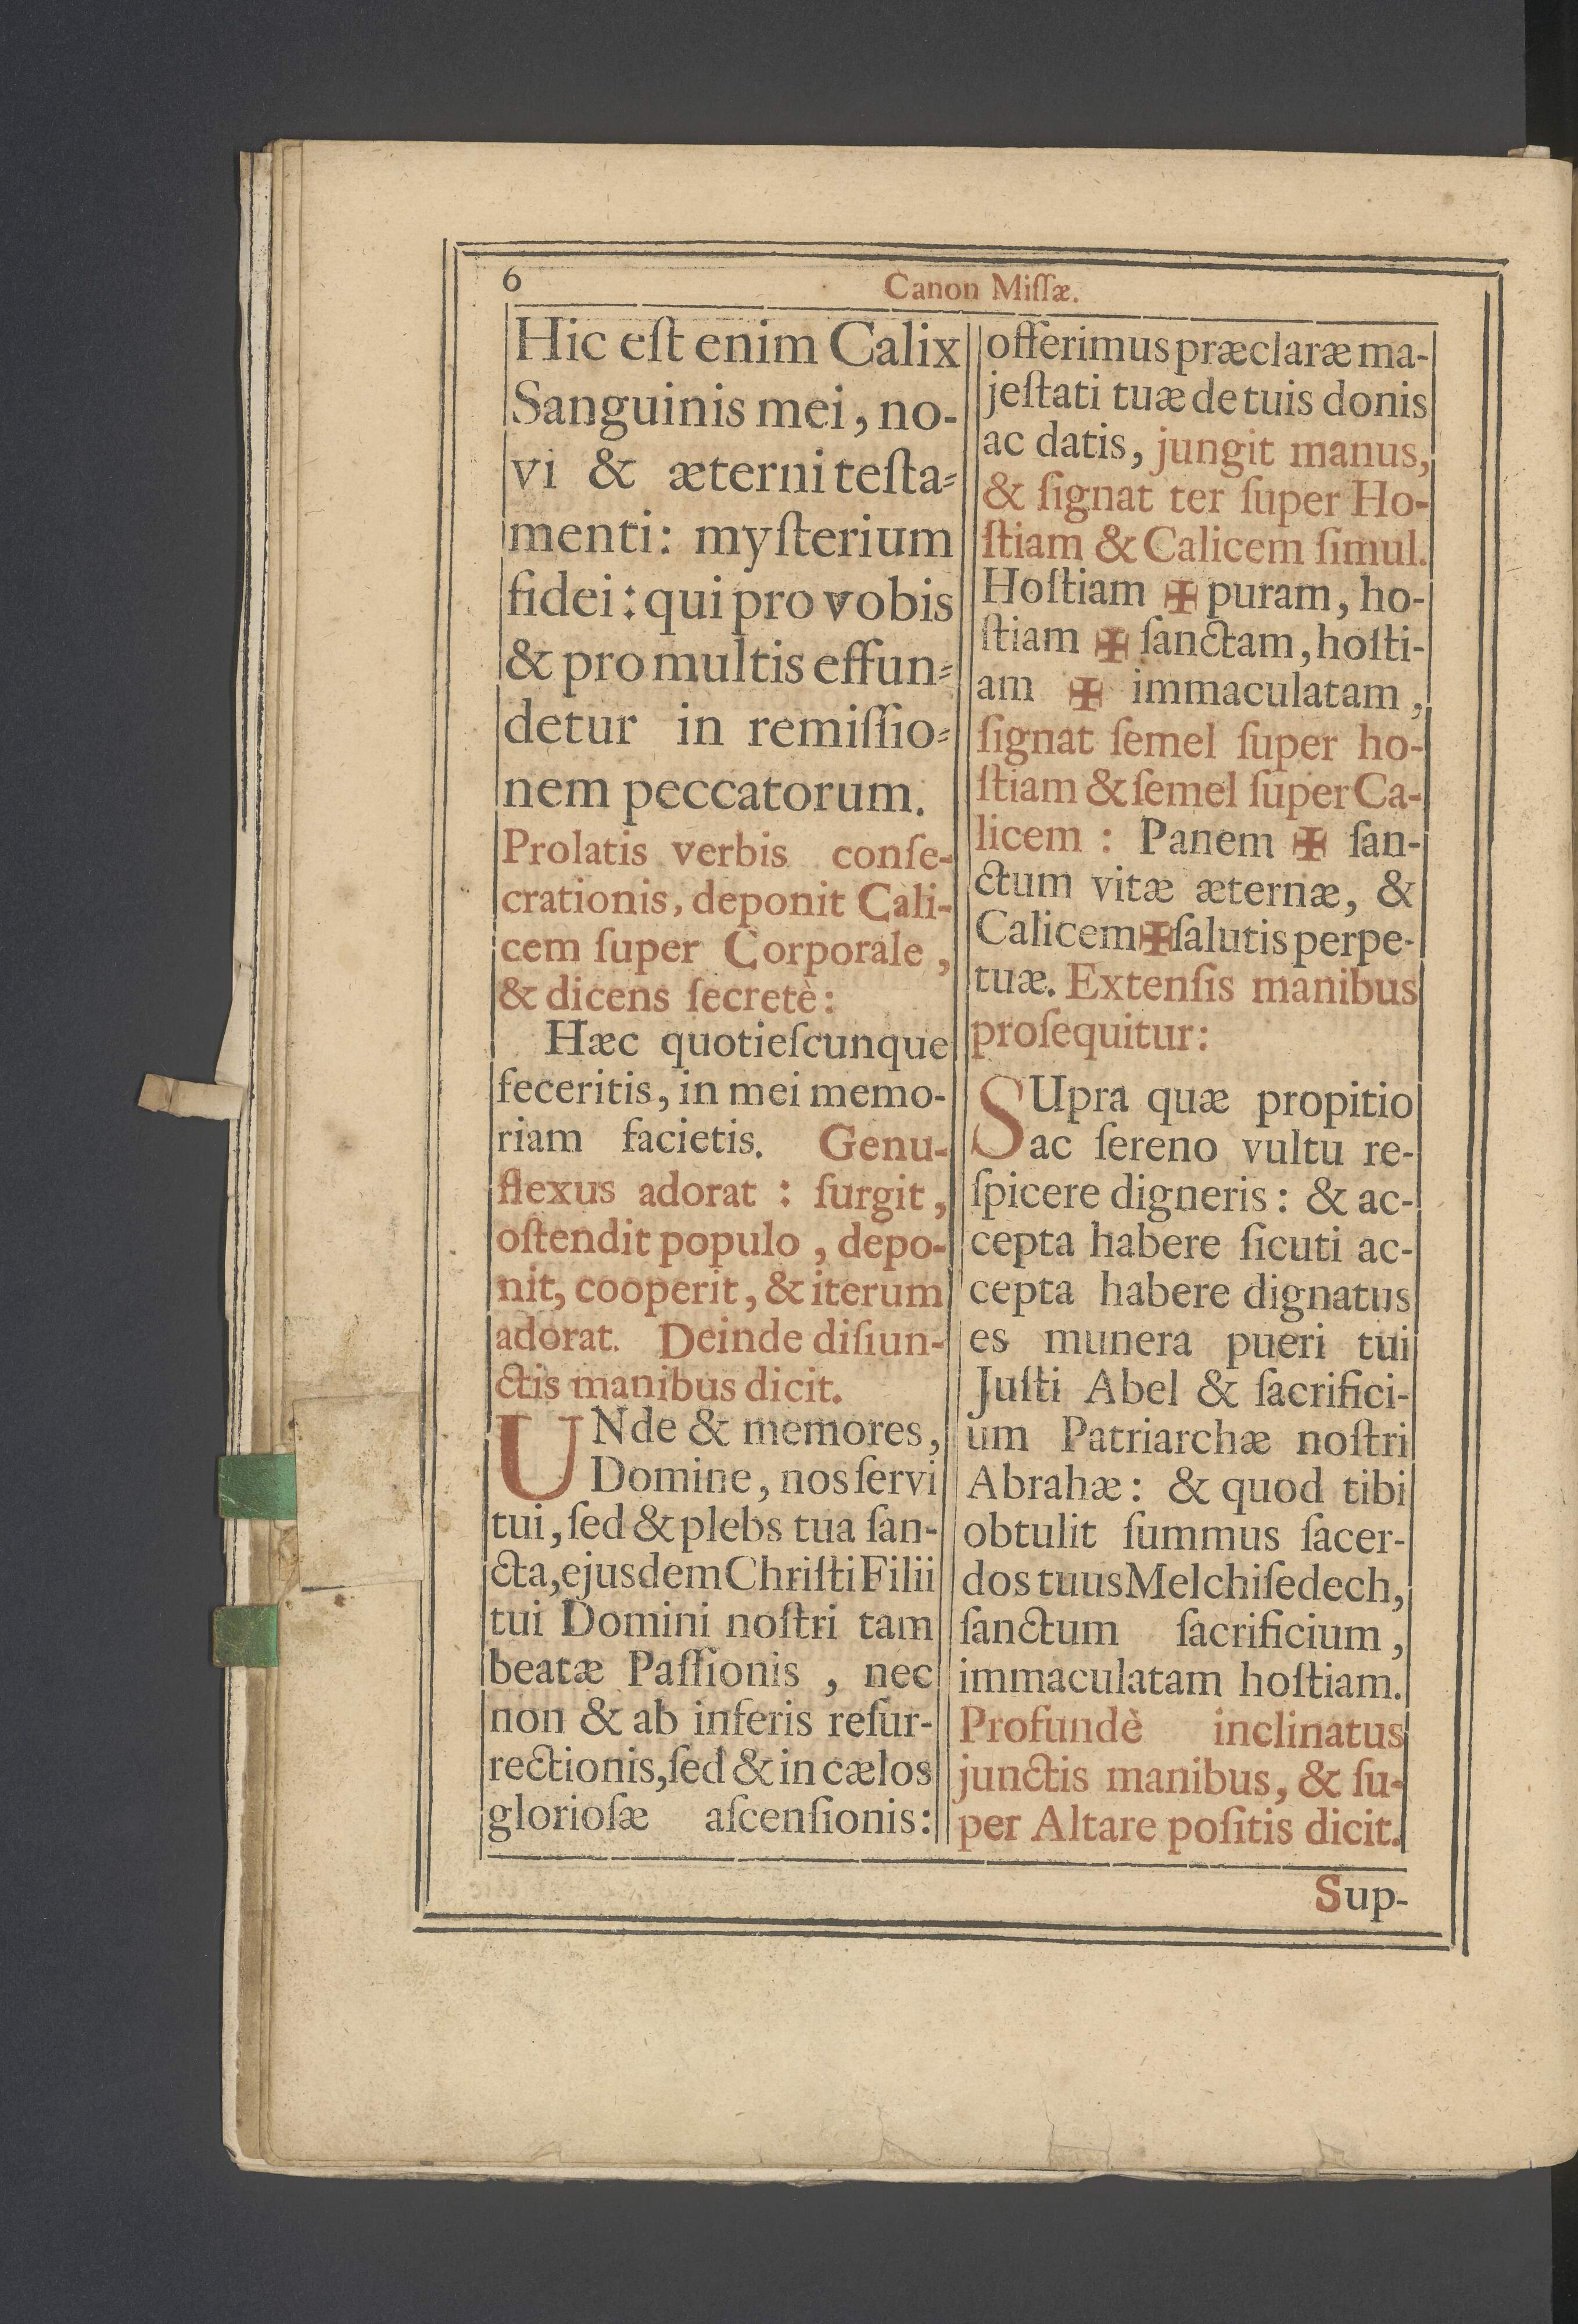 6
Canon Miſſæ.
Hic eſt enim Calix
Sanguinis mei, no-
vi & æterni teſta-
menti: myſterium
fidei: qui pro vobis
& pro multis effun-
detur in remiſſio-
nem peccatorum.
Prolatis verbis conſe-
crationis, deponit Cali-
cem ſuper Corporale,
& dicens ſecretè:
Hæc quotieſcunque
feceritis, in mei memo-
riam facietis. Genu-
flexus adorat : ſurgit,
oſtendit populo, depo-
nit, cooperit, & iterum
adorat. Deinde diſiun-
ctis manibus dicit.
UNde & memores,
Domine, nos ſervi
tui, ſed & plebs tua ſan-
cta, ejusdem Chriſti Filii
tui Domini noſtri tam
beatæ Paſſionis, nec
non & ab inferis reſur-
rectionis, ſed & in cælos
glorioſæ aſcenſionis:
offerimus præclaræ ma-
jeſtati tuæ de tuis donis
ac datis, jungit manus,
& ſignat ter ſuper Ho-
ſtiam & Calicem ſimul.
Hoſtiam ✠ puram, ho-
ſtiam ✠ ſanctam, hoſti-
am ✠ immaculatam,
ſignat ſemel ſuper ho-
ſtiam & ſemel ſuper Ca-
licem : Panem ✠ ſan-
ctum vitæ æternæ, &
Calicem ✠ ſalutis perpe-
tuæ. Extenſis manibus
proſequitur:
SUpra quæ propitio
ac ſereno vultu re-
ſpicere digneris: & ac-
cepta habere ſicuti ac-
cepta habere dignatus
es munera pueri tui
Juſti Abel & ſacrifici-
um Patriarchæ noſtri
Abrahæ: & quod tibi
obtulit ſummus ſacer-
dos tuus Melchiſedech,
ſanctum ſacrificium,
immaculatam hoſtiam.
Profundè inclinatus
junctis manibus, & ſu-
per Altare poſitis dicit.
Sup-